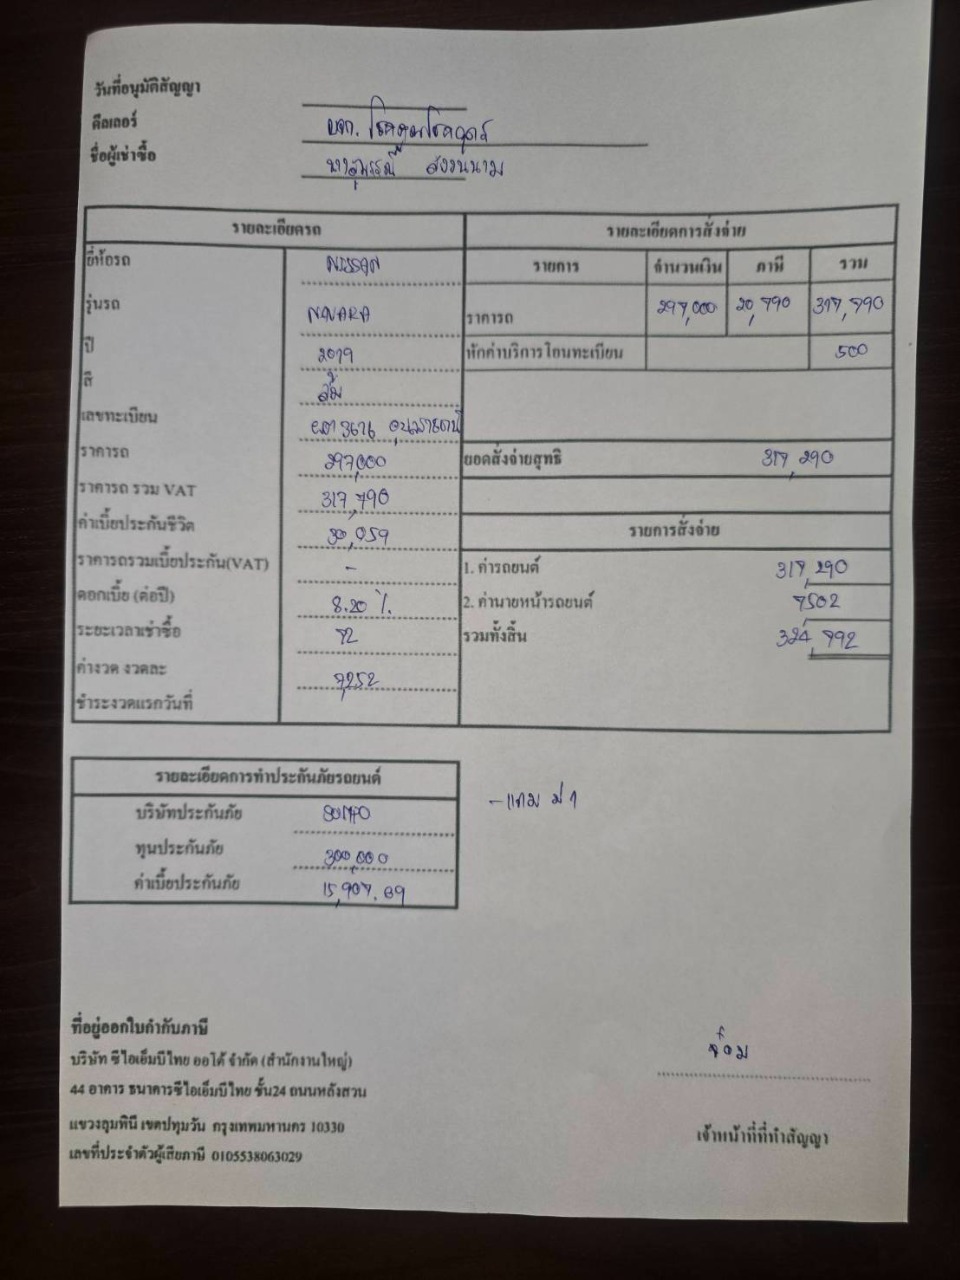 วันที่อนุมัติสัญญา
ดีลเลอร์ บจก.
ชื่อผู้เช่าซื้อ สงวนนาม
รายละเอียดรถ
ยี่ห้อรถ NISSAN
รุ่นรถ NAVARA
ปี 2019
สี ส้ม
เลขทะเบียน 3616
ราคารถ 297,000
ราคารถ รวม VAT 317,790
ค่าเบี้ยประกันชีวิต 30,059
ราคารถรวมเบี้ยประกัน(VAT) -
ดอกเบี้ย (ต่อปี) 8.20 %
ระยะเวลาเช่าซื้อ 72
ค่างวด งวดละ 7,252
ชำระงวดแรกวันที่
รายละเอียดการสั่งจ่าย
รายการ จำนวนเงิน ภาษี รวม
ราคารถ 297,000 20,790 317,790
หักค่าบริการโอนทะเบียน 500
ยอดสั่งจ่ายสุทธิ 317,290
รายการสั่งจ่าย
1. ค่ารถยนต์ 317,290
2. ค่านายหน้ารถยนต์ 7502
รวมทั้งสิ้น 324,792
รายละเอียดการทำประกันภัยรถยนต์
บริษัทประกันภัย
ทุนประกันภัย 300,000
ค่าเบี้ยประกันภัย 15,907.69
- แถม ป 1
ที่อยู่ออกใบกำกับภาษี
บริษัท ซีไอเอ็มบีไทย ออโต้ จำกัด (สำนักงานใหญ่)
44 อาคาร ธนาคารซีไอเอ็มบีไทย ชั้น24 ถนนหลังสวน
แขวงลุมพินี เขตปทุมวัน กรุงเทพมหานคร 10330
เลขที่ประจำตัวผู้เสียภาษี 0105538063029
เจ้าหน้าที่ที่ทำสัญญา